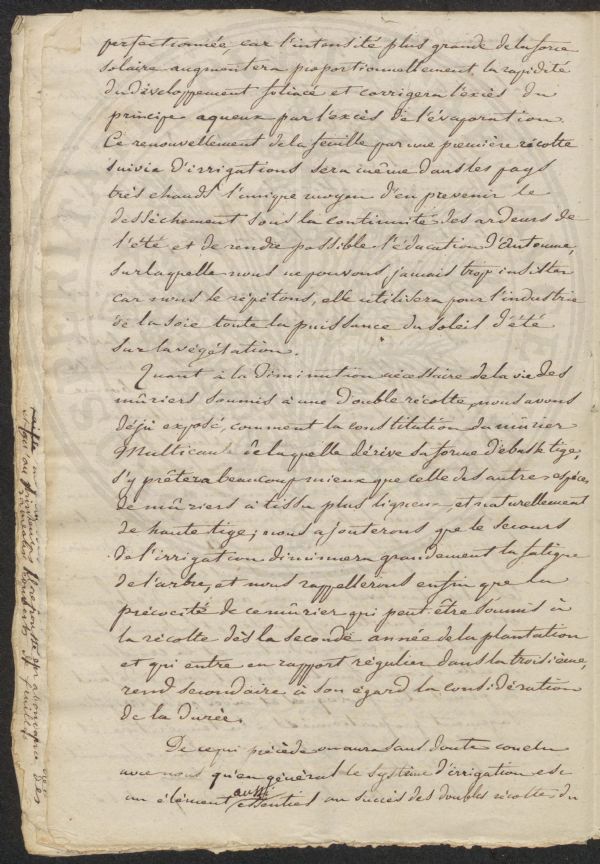 perfectionnée, car l'intensité plus grande de la force
solaire augmentera proportionnellement la rapidité
du développement foliacé et corrigera l'éxcès du
principe aqueux par l'excès de l'évaporation.
Ce renouvellement de la feuille par une première récolte
suivie d'irrigations sera même dans les pays
très chauds l'unique moyen d'en prevenir le
dessèchement sous la continuité des ardeurs de
l'été et de rendre possible l'éducation d'Automne,
sur laquelle nous ne pouvons jamais trop insister
car nous le répétons, elle utilisera pour l'industrie
de la soie toute la puissance du soleil d'été
sur la végétation.
Quant à la diminution nécessaire de la vie des
mûriers soumis à une double récolte, nous avons
déjà exposé, comment la constitution du mûrier
Multicaule de laquelle dérive sa forme de basse tige,
s'y prêtera beaucoup mieux que celle des autres espèces
de mûriers à tissu plus ligneux et naturellement
de haute tige; nous ajouterons que le secours
de l'irrigation diminuera grandement la fatigue
de l'arbre, et nous rappellerons enfin que la
précocité de ce mûrier qui peut être soumis à
la récolte dès la seconde année de la plantation
et qui entre en rapport régulier dans la troisième,
rend secondaire à son égard la considération
de la durée.
De ce qui précède on aura sans doute conclu
avec nous qu'en général le système d'irrigation est
un élément aussi essentiel au succès des doubles récoltes du